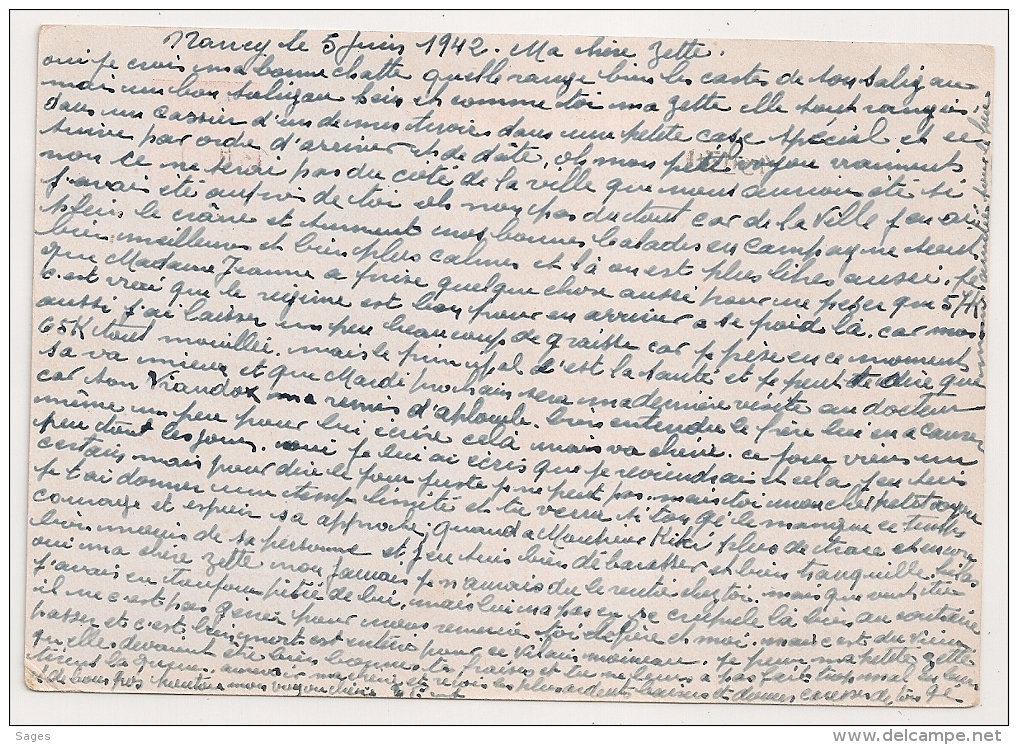 Nancy le 5 Juin 1942. Ma chère Zette.
oui je crois ma bonne chatte quelle range bien les cartes de son saligau
mais un bon saligau bein et comme toi ma zette elle sont rangés
dans un cassier d'un de mes tiroirs dans une petite case spécial et se
suive par ordre d'arriver et de date, oh mon petit voyou vraiment
non ce ne serai pas du côté de la ville que nous aurions été si
j'avais été auprès de toi oh non pas du tout car de la Ville j'en ai
plein le crâne et surement nos bonnes balades en campagne serait
bien meilleures et bien plus calmes et là on est plus libre aussi. je
que Madame Jeanne a prise quelque chose aussi pour ne peser que 54K
c'est vrai que le régime est bon pour en arriver a se poid là. car moi
aussi j'ai laisser un peu beaucoup de graisse car je pèse en ce moment
65K tout mouillée. mais le principal c'est la santé et je peut te dire que
sa va mieux et que Mardi prochain sera ma dernière visite au docteur
car son Viandox ma remis d'aplomb. bien entendu le frère lui en a causer
même un peu pour lui écrire celà mais va chérie. ce jour viens un
peu tout les jours. oui je lui ai écris que je viendrais et cela j'en suis
certain mais pour dire le jour juste je ne peut pas. mais toi mon
je t'ai donner une temp limité et tu verra si ton Gé le manque ce temps
courage et espoir sa approche; quand a Monsieur Kiki plus de trace et encore
bien moins de sa personne et j'en suis bien débarasser et bien tranquille.
oui ma chère zette non jamais je n'aurais du le rentré chez toi. mais que veut tu
j'avais eu toujour pitié de lui, mais lui n'a pas eu se crupule là bien au contraire
il ne c'est pas gené pour nous remercie toi le frère et moi. mais c'est du
passer et c'est bien mort est entérré pour ce vilain moineau. je pense ma petite zette
qu'elle devaient être bien bonnes tes fraises et tu me
au revoir ma chérie et reçois les plus ardents baisers et douces caresses de ton Gé
Sages
www.delcampe.net